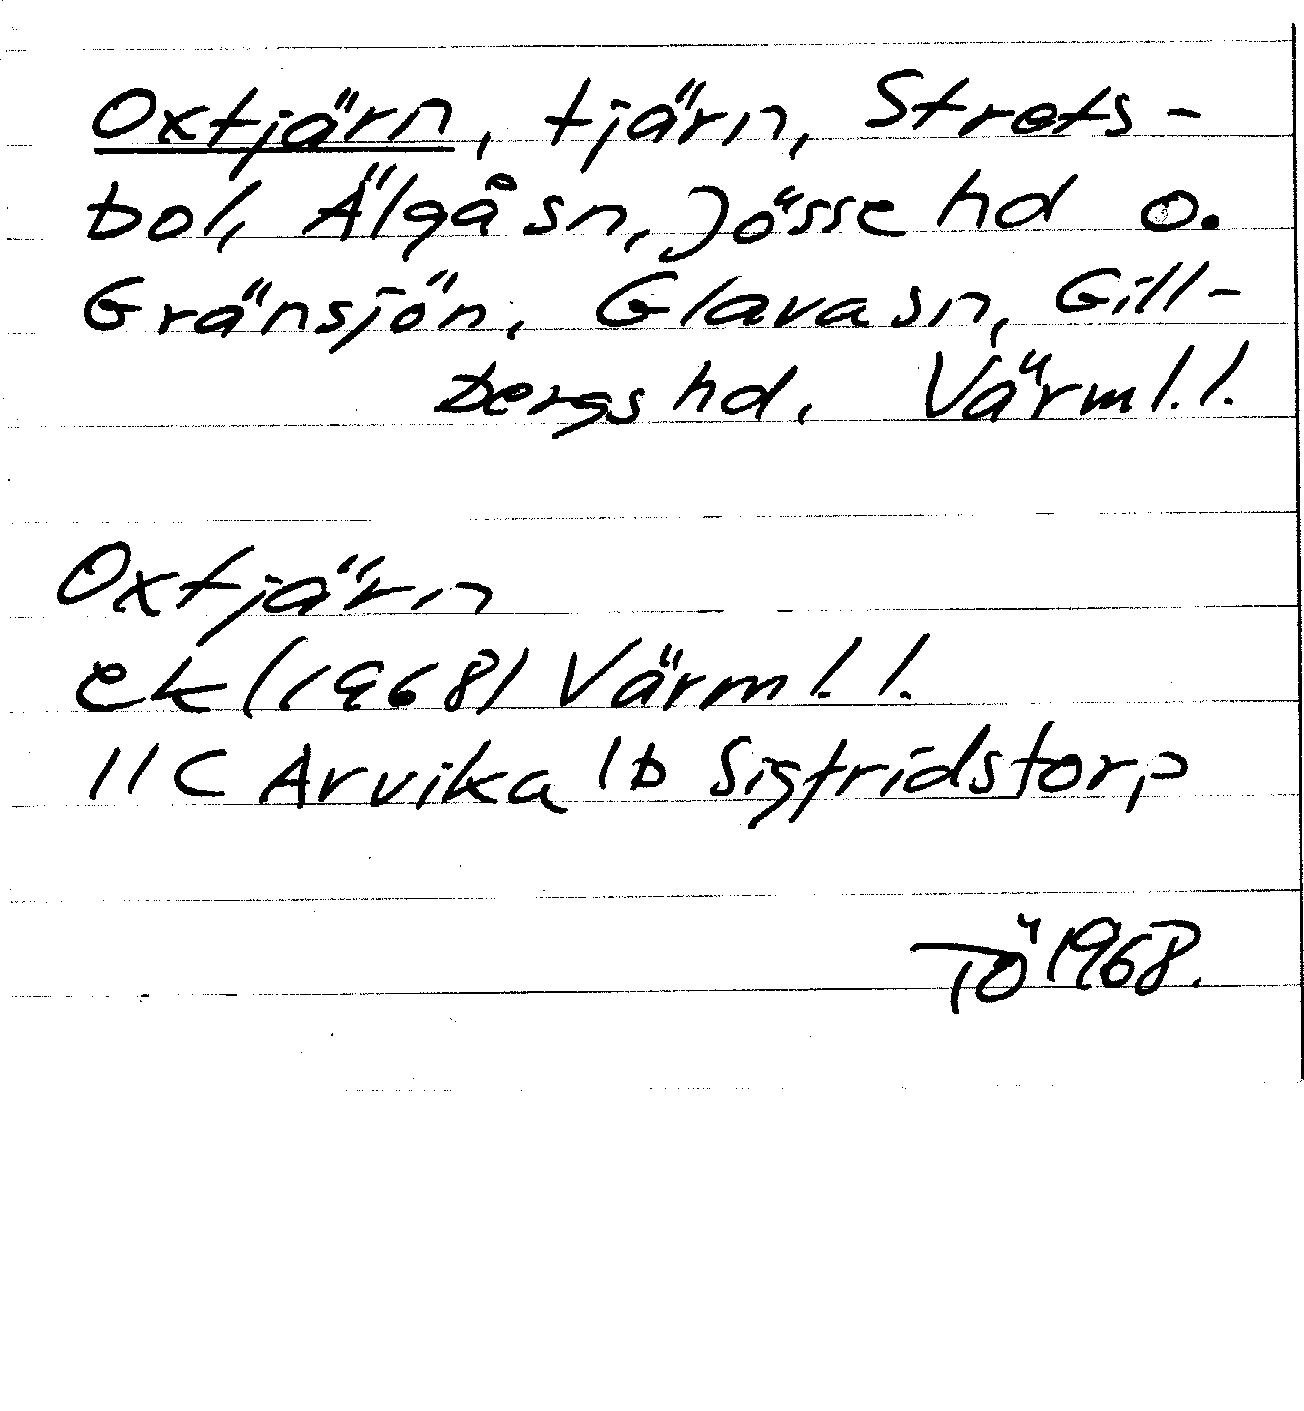 Oxtjärn, tjärn, Strets-
bol, Älgå sn, Jösse hd o.
Gränsjön, Glava sn, Gill-
bergs hd. Värml. l.
Oxtjärn
ek (1968) Värml. l.
11C Arvika 1b Sigfridstorp
TÖ 1968.